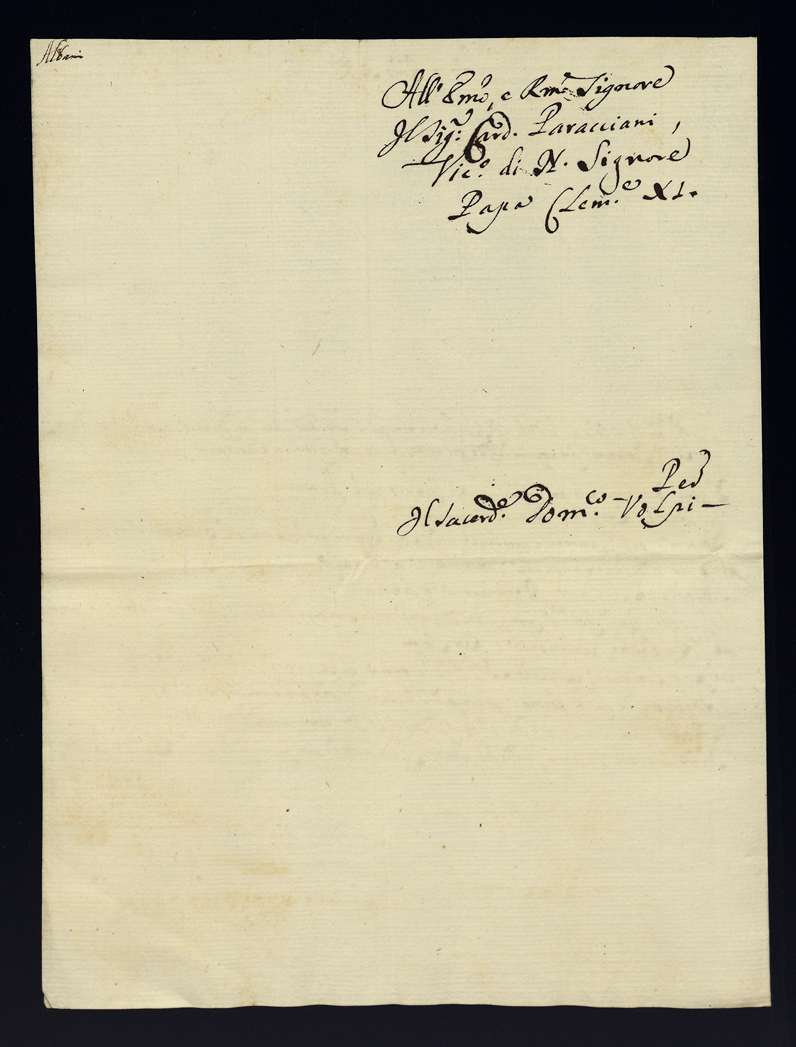 Albani
All' Emo, e Rmo Signore
Il Sigr: Card. Paracciani,
Vico. di N. Signore
Papa Clem.e XI.
Per
Il Sacerde. Domco. Volpi —